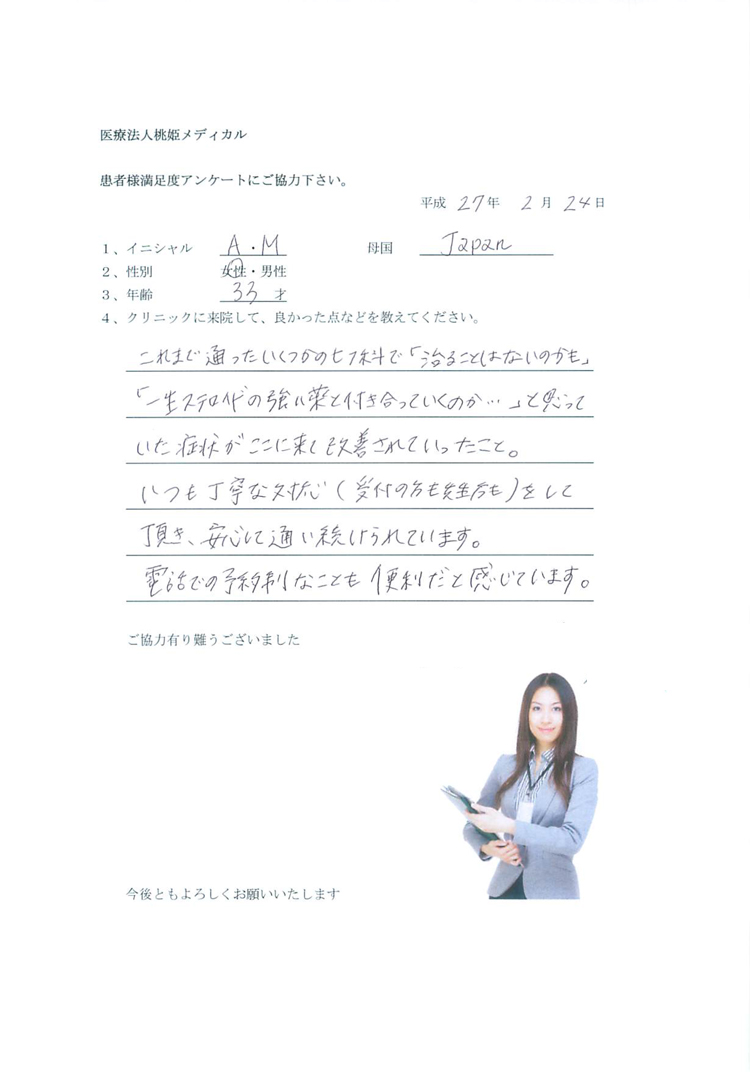 医療法人桃姫メディカル
患者様満足度アンケートにご協力下さい。
平成 27年 2月 24日
1、イニシャル A・M 母国 Japan
2、性別 女性・男性
3、年齢 33 才
4、クリニックに来院して、良かった点などを教えてください。
これまで通ったいくつかのヒフ科で「治ることはないのかも」
「一生ステロイドの強い薬と付き合っていくのか…」と思って
いた症状がここに来て改善されていったこと。
いつも丁寧な対応(受付の方も先生方も)をして
頂き、安心して通い続けられています。
電話での予約制なことも便利だと感じています。
ご協力有り難うございました
今後ともよろしくお願いいたします